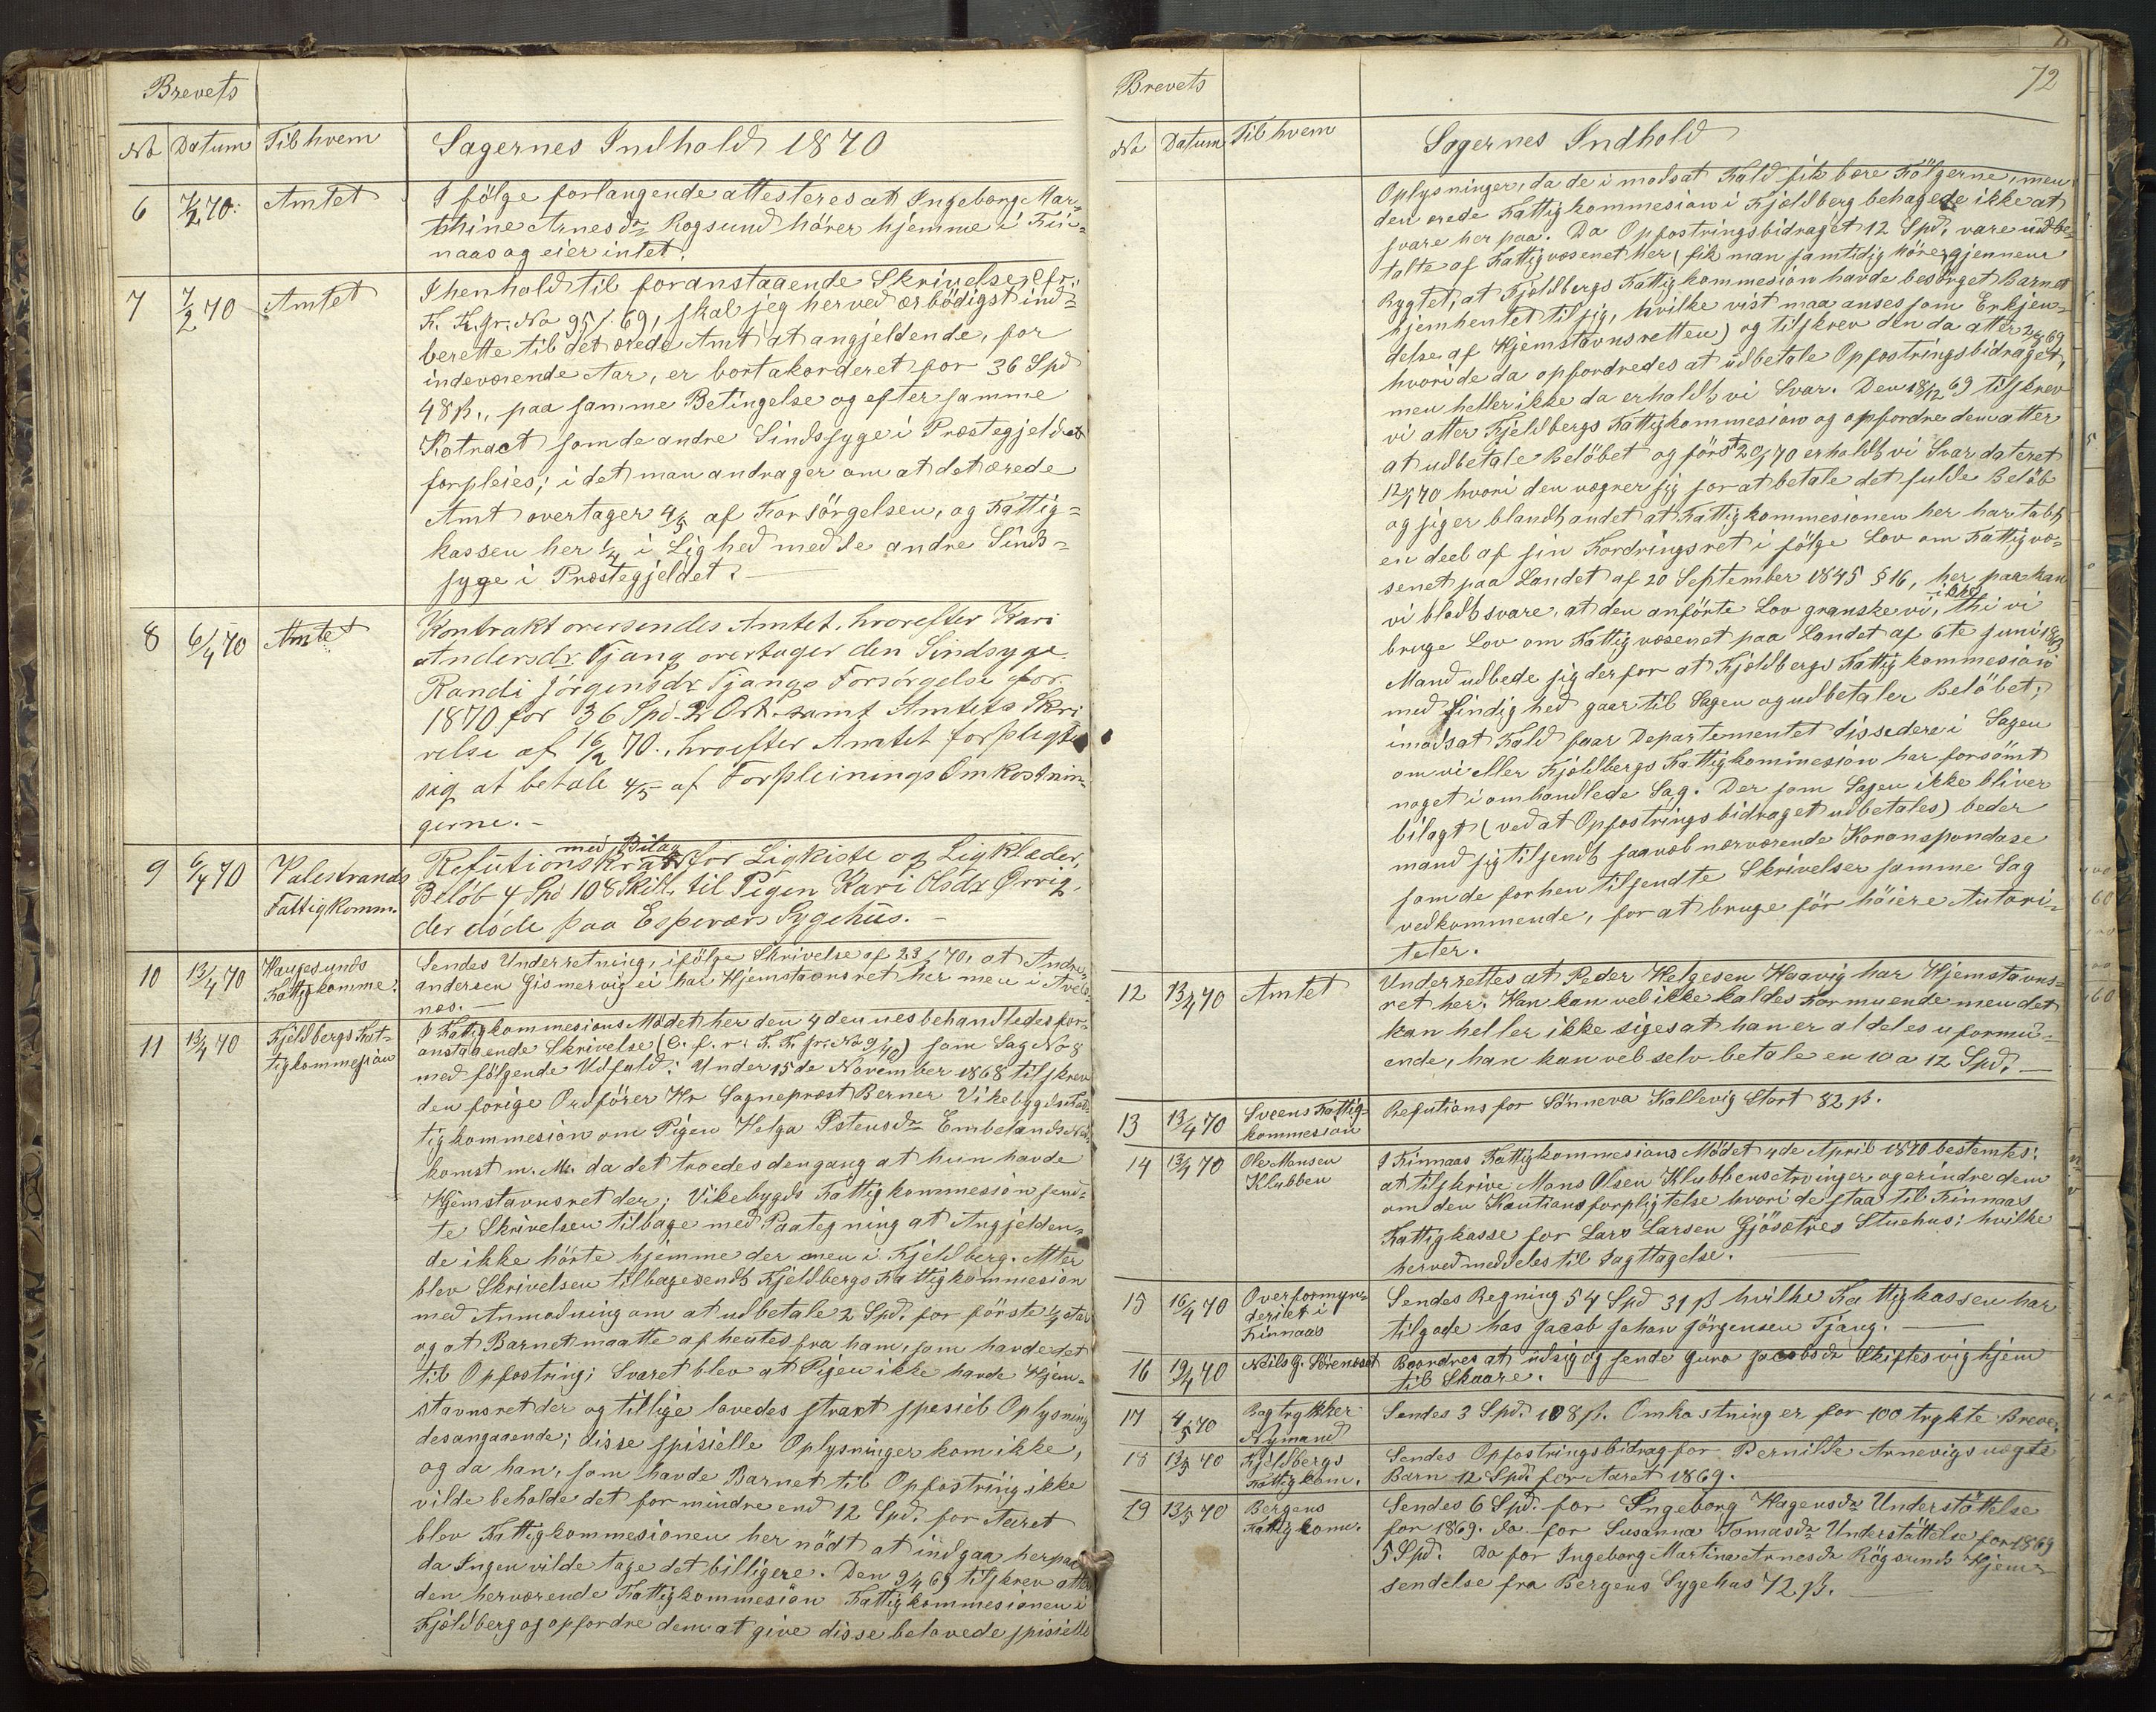 Brevets
No Datum Til hvem Sagernes Indhold 1870
6 7/2 70. Amtet I følge forlangende attesteres at Ingeborg Mar-
thine Arnesdr Rogsund hører hjemme i Fin-
naas og eier intet.
7 7/2 70 Amtet I henhold til foranstaaende Skrivelse cfr.
F. K. pr. No 95/69, skal jeg herved ærbödigst ind-
berette til det ærede Amt at angjeldende, for
indeværende Aar, er bortakorderet for 36 Spd
48 ß., paa samme Betingelse og efter samme
Kotract som de andre Sindssyge i Præstegjeldet
forpleies; i det man andrager om at det ærede
Amt overtager 4/5 af Forsörgelsen, og Fattig-
kassen her 1/4 i Lighed med de andre Sinds-
syge i Præstegjeldet.
8 6/4 70 Amtet Kontrakt oversendes Amtet, hvorefter Kari
Andersdr Tjang overtager den Sindsyge
Randi Jörgensdr Tjangs Forsörgelse for
1870 for 36 Spd 2 Ort samt Amtets Skri
velse af 16/2 70., hvoefter Amtet forpligte
sig at betale 4/5 af Forpleinings Omkostnin-
gerne.-
9 6/4 70 Valestrands Fattigkomm. med Bilag
Refutionskrav for Ligkiste og Ligklæder,
Belöb 4 Spd 108 Skill, til Pigen Kari Olsdr Ørvig,
der døde paa Espevær Sygehus. -
10 13/4 70 Haugesunds Fattigkomme. Sendes Underretning, i følge Skrivelse af 23/ 70, at Andre
andersen Gismervig ei har Hjemstavnsret her men i Avels-
nes.
11 13/4 70 Fjeldbergs Fat-
tigkommesion I Fattigkommesions Mödet her den 4 dennes behandledes for-
anstaaende Skrivelse (C. f. r. F. K. pr. No 9/70) som Sag No 8
med følgende Udfald: Under 15de November 1868 tilskrev
den forige Ordförer Hr Sagnepræst Berner Vikebygds Fat-
tigkommesion om Pigen Helga Ostensdr Embelands Ned-
komst m. M. da det troedes dengang at hun havde
Hjemstavnsret der; Vikebygds Fattigkommesion send-
te Skrivelsen tilbage med Paategning at Angjelden-
de ikke hörte hjemme der men i Fjeldberg. Atter
blev Skrivelsen tilbagesendt Fjeldbergs Fattigkommesion
med Anmodning om at udbetale 2 Spd. for förste 1/4 Aar
og at Barnet maatte afhentes fra ham, som havde det
til Opfostring; Svaret blev at Pigen ikke havde Hjem-
stavnsret der og tillige lovedes strax spesiel Oplysning
desangaaende; disse spisielle Oplysninger kom ikke,
og da han, som havde Barnet til Opfostring ikke
vilde beholde det for mindre end 12 Spd. for Aaret
blev Fattigkommesionen her nödt at indgaa herpaa
da Ingen vilde tage det billigere. Den 9/4 69 tilskrev atter
den herværende Fattigkommesion Fattigkommesionen i
Fjeldberg og opfordre dem at give disse belovede spisielle
72
Brevets
No Datum Til hvem Sagernes Indhold
Oplysninger, da de i modsat Fald fik bære Fölgerne, men
den ærede Fattigkommesion i Fjeldberg behagede ikke at
svare her paa. Da Opfostringsbidraget 12 Spd. vare udbe-
talte af Fattigvæsenet her (fik man samtidig höre gjennem
Rygtet, at Fjeldbergs Fattigkommesion havde besörget Barnet
hjemhentet til sig, hvilke vist maa anses som Erkjen-
delse af Hjemstavnsretten) og tilskrev den da atter 69
hvori de da opfordredes at udbetale Opfostringsbidraget,
men heller ikke da erholdt vi Svar. Den 18/12 69 tilskrev
vi atter Fjeldbergs Fattigkommesion og opfordre dem atter
at udbetale Belöbet og först 20/1 70 erholdt vi Svar dateret
12/1 70 hvori den vægrer sig for at betale det fulde Belöb
og siger blandt andet at Fattigkommesionen her har tabt
en deel af sin Fordringsret i følge Lov om Fattigvæ-
senet paa Landet af 20 September 1845 § 16, her paa kan
vi blodt svare, at den anförte Lov granske vi ikke, thi vi
bruge Lov om Fattigvæsenet paa Landet af 6te Juni 1863
Mand udbede sig derfor at Fjeldbergs Fattigkommesion
med Sindighed gaar til Sagen og udbetaler Belöbet;
imodsat Fald faar Departementet dissedere i Sagen
om vi eller Fjeldbergs Fattigkommesion har forsömt
noget i omhandlede Sag. Der som Sagen ikke bliver
bilagt (ved at Opfostringsbidraget udbetales) beder
mand sig tilsendt saavel nærværende Koranspondase
som de forhen tilsendte Skrivelser samme Sag
vedkommende, for at bruge för höiere Autori-
teter.
12 13/4 70 Amtet Underrettes at Peder Helgesen Haavig har Hjemstavns-
ret her. Han kan vel ikke kaldes Formuende men det
kan heller ikke siges at han er aldeles uformu-
ende, han kan vel selv betale en 10 a 12 Spd. —
13 13/4 70 Sveens Fattig-
kommesion Refutions for Sönneva Kallevig Stort 82 ß.
14 13/4 70 Ole Monsen
Klubben I Finnaas Fattigkommesions Mödet 4de April 1870 bestemtes:
at tilskrive Mons Olsen Klubbens Arvinger og erindre dem
om den Kautionsforpligtelse hvori de staa til Finnaas
Fattigkasse for Lars Larsen Gjösætres Stuehus; hvilke
herved meddeles til Iagttagelse.
15 16/4 70 Overformyn-
deriet i
Finnaas Sendes Regning 54 Spd 31 ß hvilke Fattigkassen har
tilgode hos Jacob Johan Jörgensen Tjang.
16 19/4 70 Neils G. Sörenset Beordres at udsig og sende Guro Jacobsdr Skiftesvig hjem
til Skaare.
17 4/5 70 Bogtrykker
Nymand Sendes 3 Spd. 108 ß. Omkostninger for 100 trykte Breve.
18 13/5 70 Fjeldbergs
Fattigkom. Sendes Opfostringsbidrag for Pernille Arnevigs uægte
Barn 12 Spd. for Aaret 1869.
19 13/5 70 Bergens
Fattigkom. Sendes 6 Spd. for Ingeborg Hagensdr Understöttelse
for 1869. Do for Susanna Tomasdr Understöttelse for 1869
5 Spd. Do for Ingeborg Martina Arnesdr Rögsunds Hjem-
sendelse fra Bergens Sygehus 72 ß.